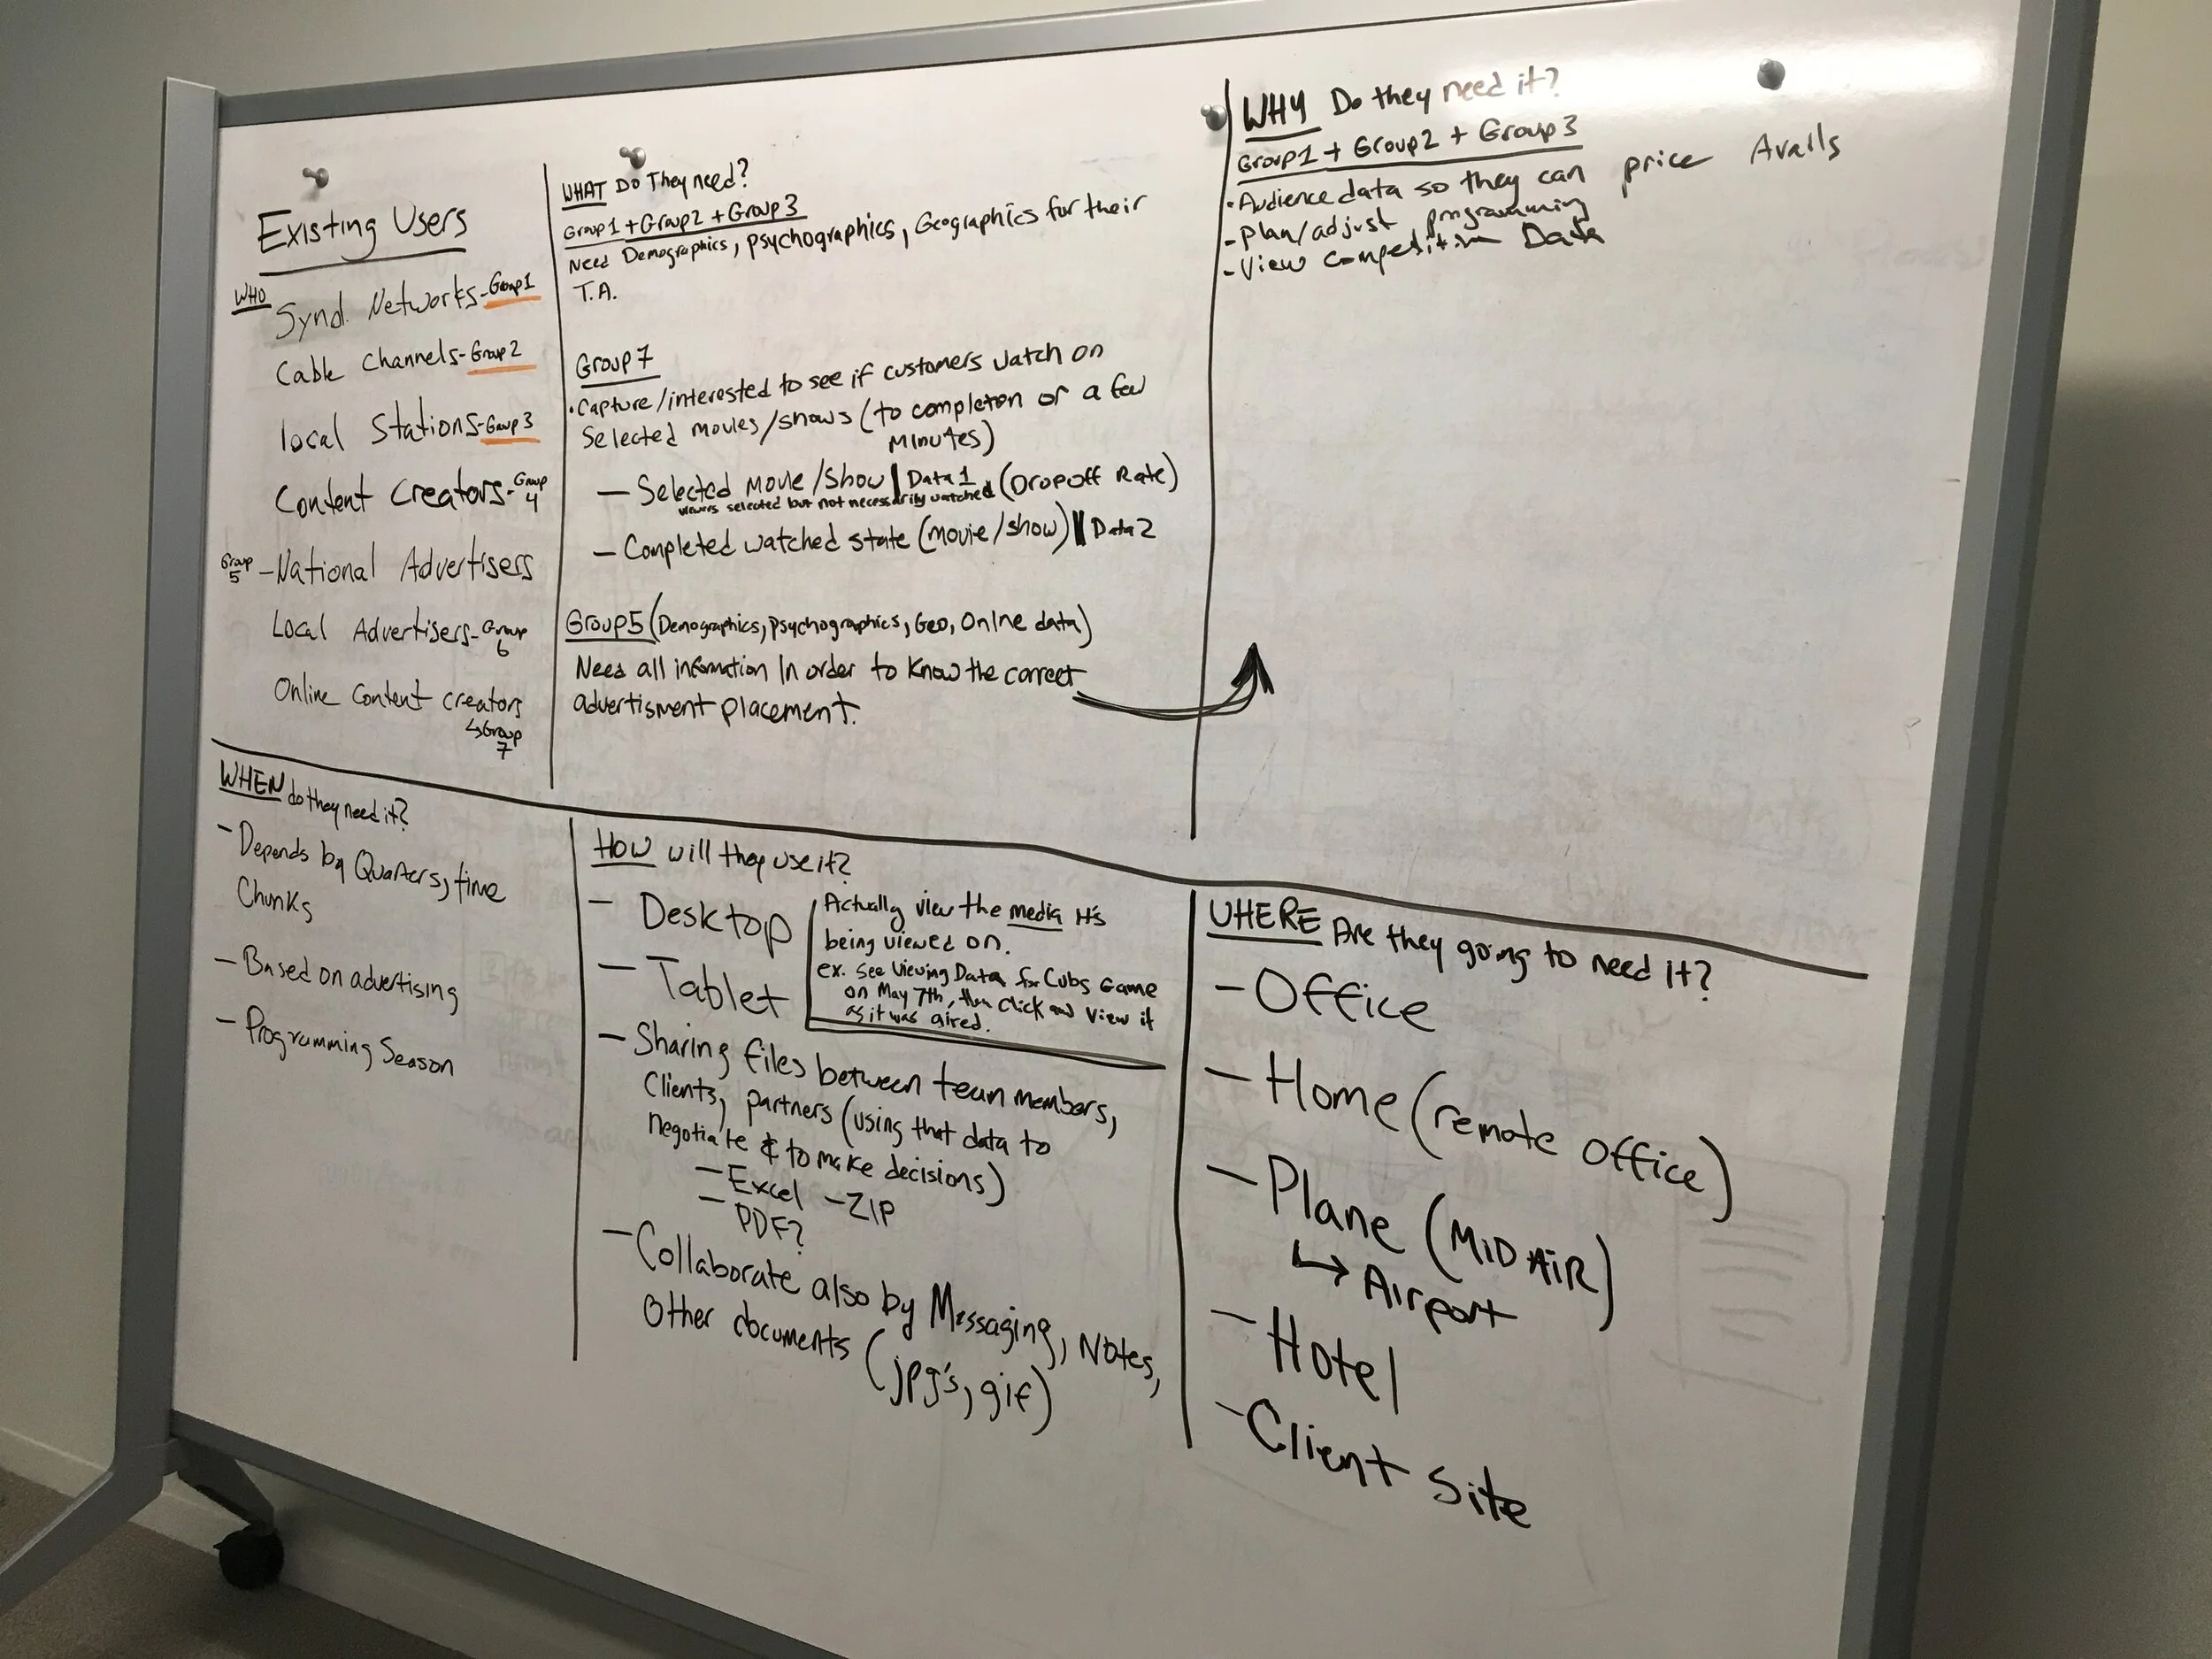 Existing Users
WHO
Synd. Networks-Group1
Cable Channels-Group2
local Stations-Group3
Content Creators-Group 4
Group 5 -National Advertisers
Local Advertisers-Group 6
Online Content creators
↳Group 7
WHAT Do They need?
Group1+Group2+Group3
Need Demographics, psychographics, Geographics for their
T.A.
Group7
•Capture/interested to see if customers watch on
Selected movies/shows (to completon or a few
Minutes)
— Selected movie/show | Data1 (Dropoff Rate)
viewers selected but not necessarily watched
— Completed watched state (movie/show) | Data2
Group5 (Demographics, psychographics, Geo, Onlne data)
Need all information In order to know the correct
advertisment placement.
WHY Do they need it?
Group1 + Group2 + Group3
•Audience data so they can price Avails
-Plan/adjust programming
-View Data
WHEN do they need it?
- Depends by Quarters, time
Chunks
- Based on advertising
- Programming Season
How will they use it?
- Desktop
- Tablet
Actually view the media It's
being viewed on.
ex. see Viewing Data for Cubs Game
on May 7th, then click and view it
as it was aired.
- Sharing files between team members,
Clients, partners (using that data to
negotiate & to make decisions)
- Excel -ZIP
- PDF?
- Collaborate also by Messaging, Notes,
Other documents (jpg's, gif)
WHERE Are they going to need it?
- Office
- Home (remote office)
- Plane (MID AiR)
↳ Airport
- Hotel
- Client Site